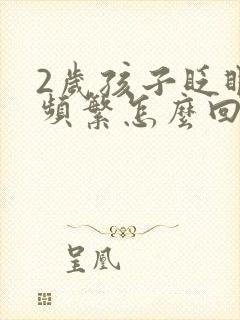 2歲孩子眨眼
頻繁怎麼回
呈凰